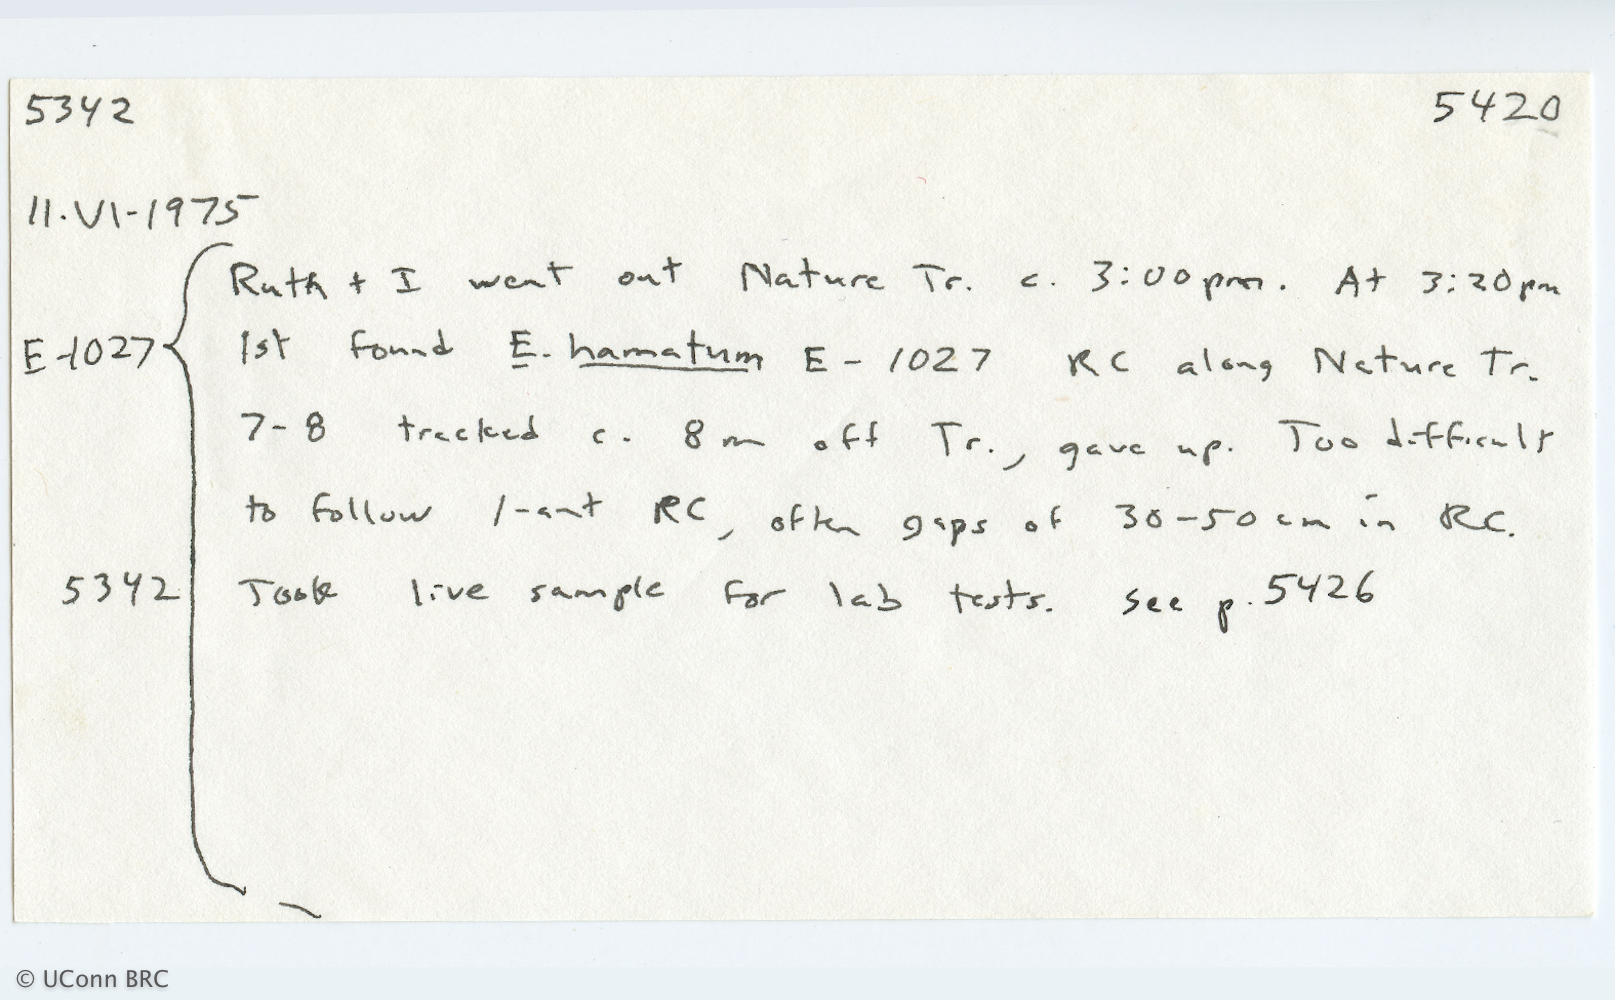 5342 5420
11.VI-1975
Ruth + I went out Nature Tr. c. 3:00pm. At 3:20pm
E-1027 1st found E. hamatum E-1027 RC along Nature Tr.
7-8 tracked c. 8m off Tr., gave up. Too difficult
to follow 1-ant RC, often gaps of 30-50 cm in RC.
5342 Took live sample for lab tests. See p. 5426
© UConn BRC